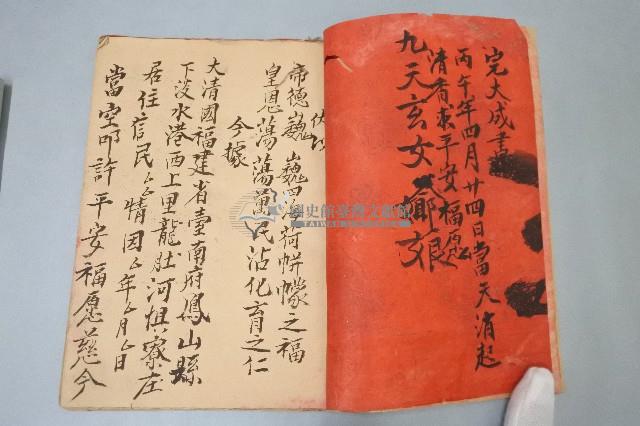 完大成書
丙午年四月廿四日當天消起
清香求平安福愿
九天玄女娘
伏以
帝德巍巍 荷帡幪之福
皇恩蕩蕩萬民沾化育之仁
今據
大清國福建省臺南府鳳山縣
下淡水港西上里龍肚河棋寮庄
居住信民厶厶情因厶年厶月厶日
當空叩許平安福愿慈今
國史館臺灣文獻館
TAIWAN HISTORICA